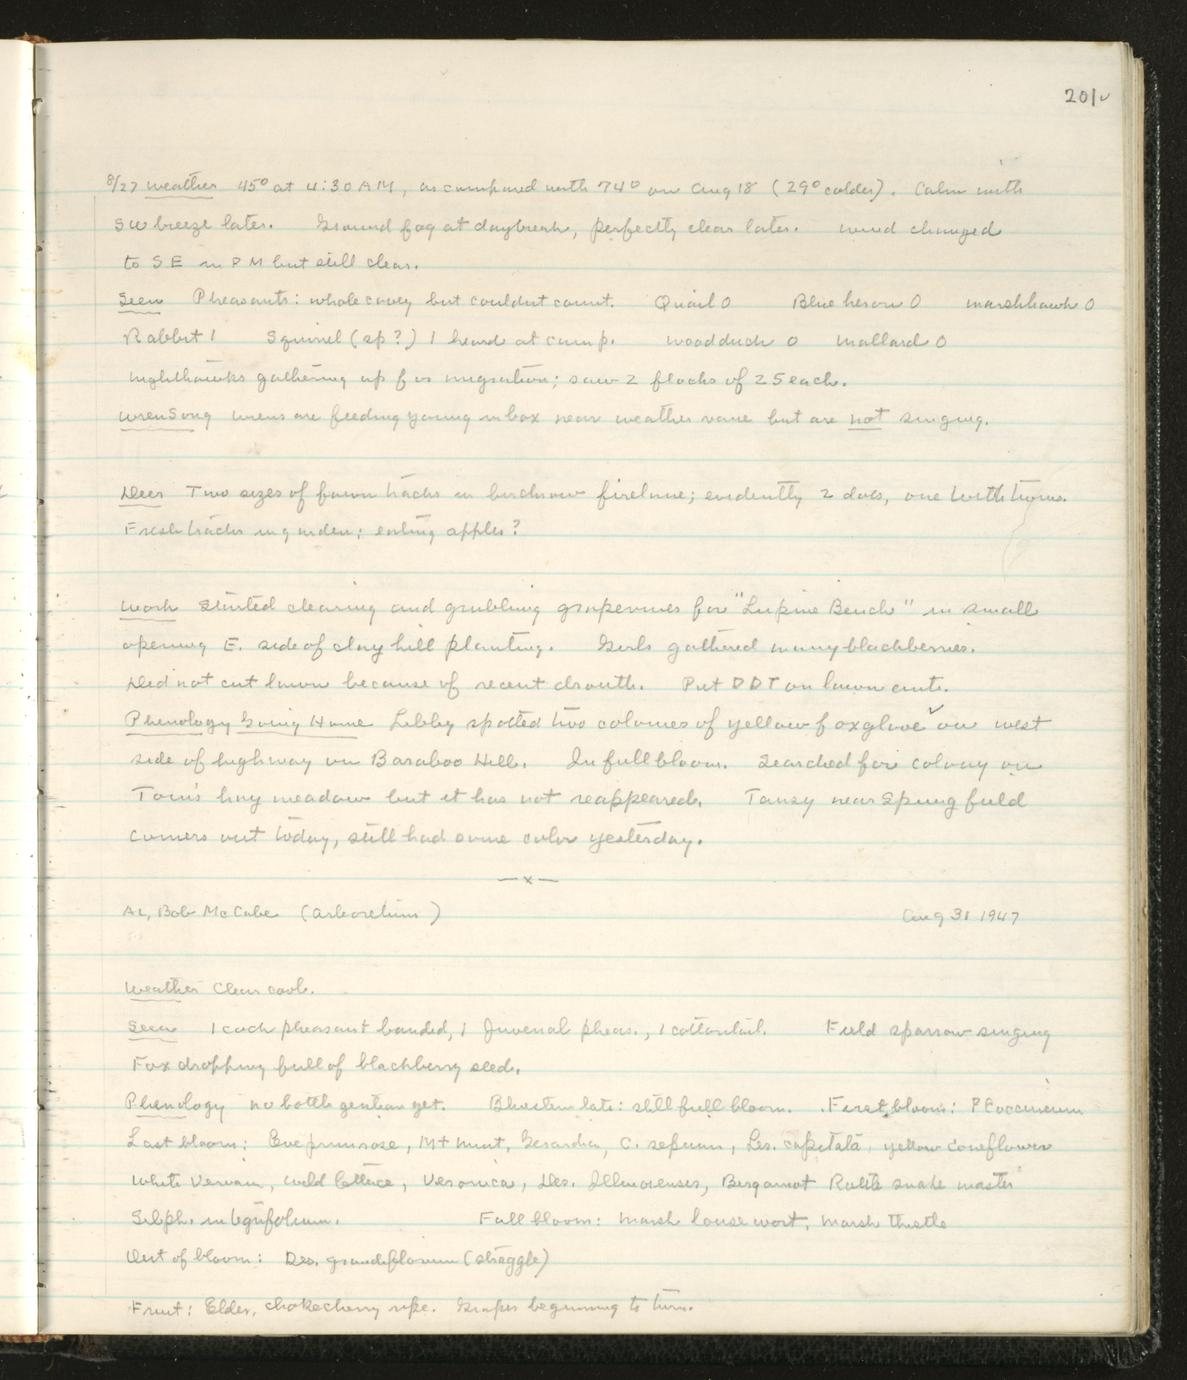 201
8/27 Weather 45° at 4:30 AM, as compared with 74° on Aug 18 (29° colder). Calm with
SW breeze later. Ground fog at daybreak, perfectly clear later. Wind changed
to SE in PM but still clear.
Seen Pheasants: whole covey but couldnt count. Quail 0 Blue heron 0 Marshhawk 0
Rabbit 1 Squirrel (sp?) 1 heard at camp. Woodduck 0 Mallard 0
Nighthawks gathering up for migration; saw 2 flocks of 25 each.
Wren Song Wrens are feeding young in box near weather vane but are not singing.
Deer Two sizes of fawn tracks in birchrow firelane; evidently 2 does, one with twins.
Fresh tracks in garden; eating apples?
Work Started clearing and grubbing grapevines for "Lupine Bench" in small
opening E. side of clay hill planting. Girls gathered many blackberries.
Did not cut lawn because of recent drouth. Put DDT on lawn ants.
Phenology Going Home Libby spotted two colonies of yellow foxglove on west
side of highway on Baraboo Hill. In full bloom. Searched for colony on
Tom's hay meadow but it has not reappeared. Tansy near Springfield
Corners out today, still had some color yesterday.
—x—
AL, Bob McCabe (Arboretum) Aug 31 1947
Weather Clear cool.
Seen 1 cock pheasant banded, 1 Juvenal pheas., 1 cottontail. Field sparrow singing
Fox dropping full of blackberry seed.
Phenology no bottle gentian yet. Bluestem late: still full bloom. First bloom: P coccineum
Last bloom: Eve primrose, Mt mint, Gerardia, C. sepium, Les. capitata, yellow coneflower
White Vervain, wild lettuce, Veronica, Des. Illinoiensis, Bergamot Rattle snake master
Silph. integrifolium. Full bloom: Marsh louse wort, Marsh thistle
Out of bloom: Des. grandiflorum (straggle)
Fruit: Elder, chokecherry ripe. Grapes beginning to turn.